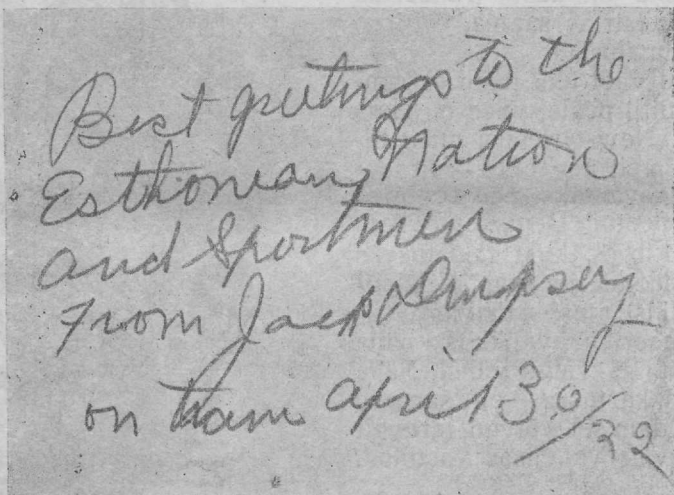 Best greetings to the
Esthonian Nation
and Sportmen
From Jack Dempsey
on train April 30/22